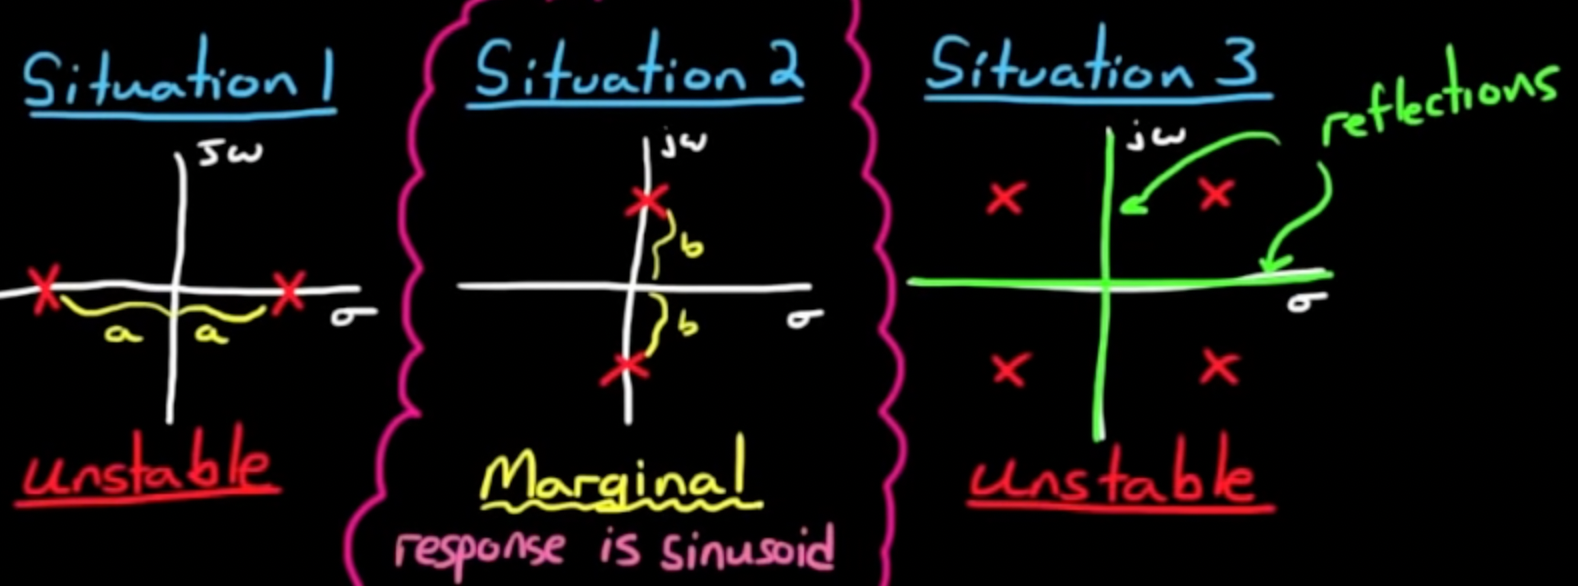 Situation 1
Jω
σ
a
a
unstable
Situation 2
jω
b
b
σ
Marginal
response is sinusoid
Situation 3
reflections
jω
σ
unstable